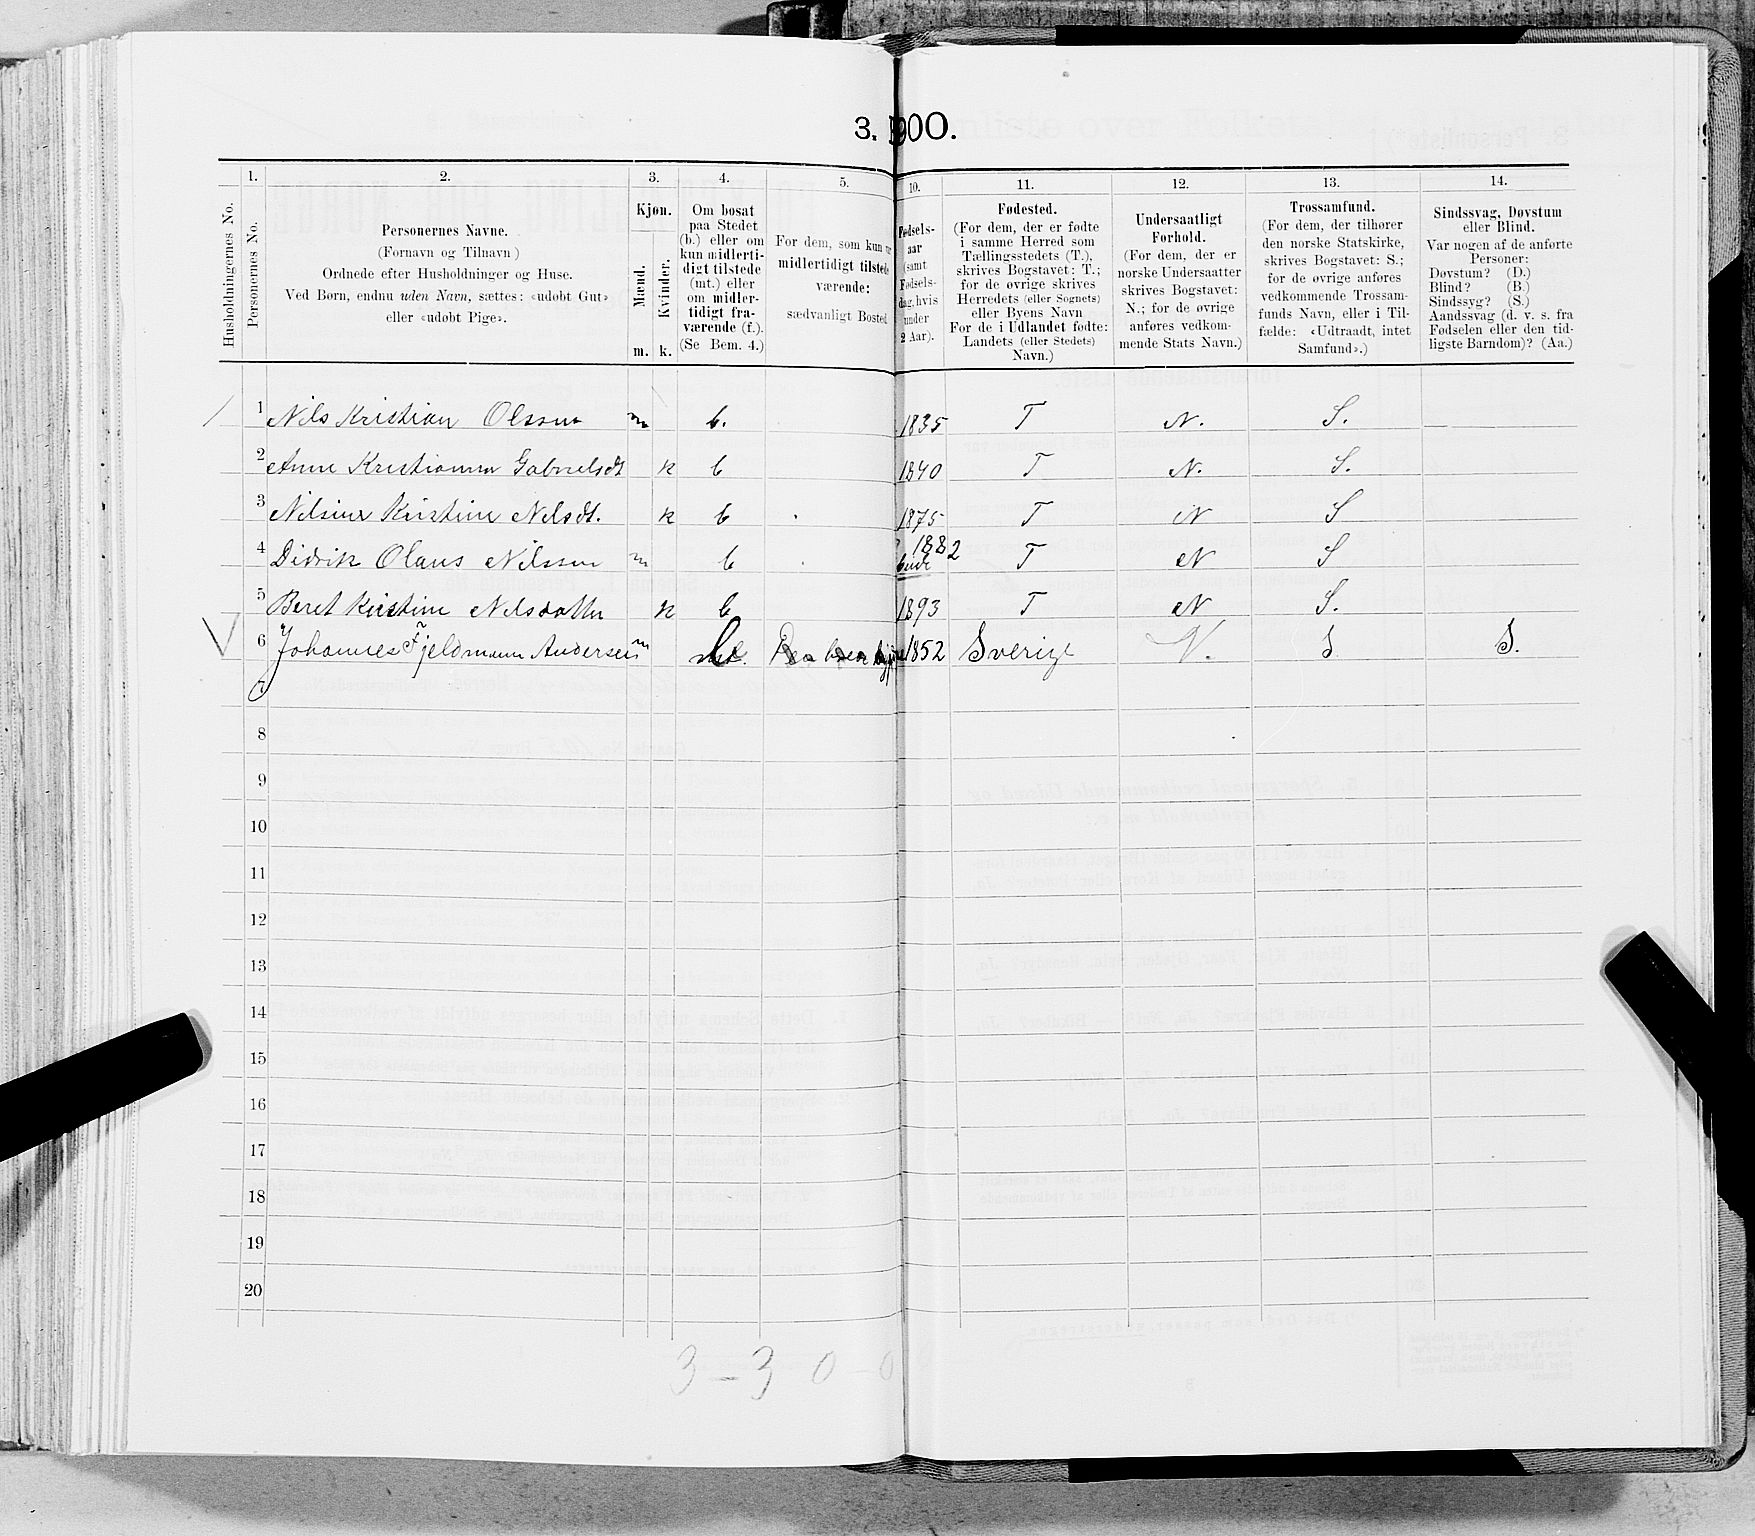 3. 1900.
1. 2. 3. 4. 5. 10. 11. 12. 13. 14.
Husholdningernes No.
Personernes No.
Personernes Navne.
(Fornavn og Tilnavn)
Ordnede efter Husholdninger og Huse.
Ved Børn, endnu uden Navn, sættes: «udøbt Gut»
eller «udøbt Pige».
Kjøn.
Mænd.
Kvinder.
m. k.
Om bosat
paa Stedet
(b.) eller om
kun midlerti-
digt tilstede
(mt.) eller
om midler-
tidigt fra-
værende (f.).
(Se Bem. 4.)
For dem, som kun
midlertidigt tilstede
værende:
sædvanligt Bosted
Fødsels-
aar
(samt
Fødsels-
dag, hvis
under
2 Aar).
Fødested.
(For dem, der er fødte
i samme Herred som
Tællingsstedets (T.),
skrives Bogstavet: T.;
for de øvrige skrives
Herredets (eller Sognets)
eller Byens Navn
For de i Udlandet fødte:
Landets (eller Stedets)
Navn.)
Undersaatligt
Forhold.
(For dem, der er
norske Undersaatter
skrives Bogstavet:
N.; for de øvrige
anføres vedkom-
mende Stats Navn.)
Trossamfund.
(For dem, der tilhører
den norske Statskirke,
skrives Bogstavet: S.;
for de øvrige anføres
vedkommende Trossam-
funds Navn, eller i Til-
fælde: «Udtraadt, intet
Samfund».)
Sindssvag, Døvstum
eller Blind.
Var nogen af de anførte
Personer:
Døvstum? (D.)
Blind? (B.)
Sindssyg? (S.)
Aandssvag (d. v. s. fra
Fødselen eller den tid-
ligste Barndom)? (Aa.)
/ 1 Nils Kristian Olssen m b. 1835 T N. S.
2 Anne Kristianna Gabrielsdt k b 1840 T N. S.
3 Nilsine Kristine Nelsdt. k b 1875 T N S
4 Didrik Olaus Nilssen m b 1882 T N S
5 Beret Kristine Nelsdatter k b 1893 T N S.
V 6 Johannes Fjeldmann Andersen m b 1852 Sverige N. S S.
7
8
9
10
11
12
13
14
15
16
17
18
19
20
3 - 3 0 - 0